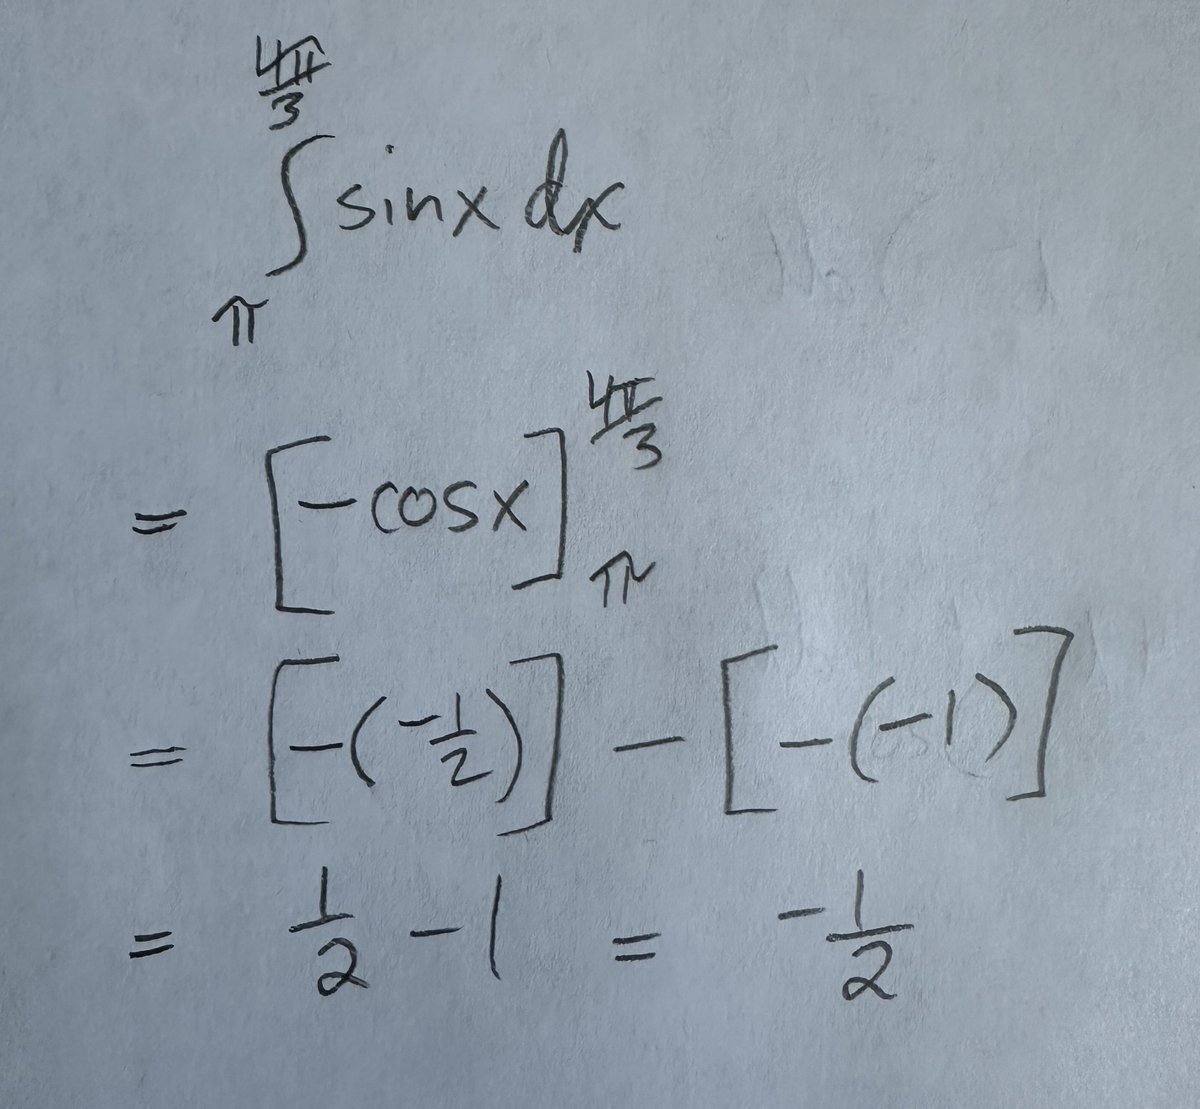 ∫_π^{4π/3} sinx dx
= [-cosx]_π^{4π/3}
= [-(-1/2)] - [-(-1)]
= 1/2 - 1 = -1/2